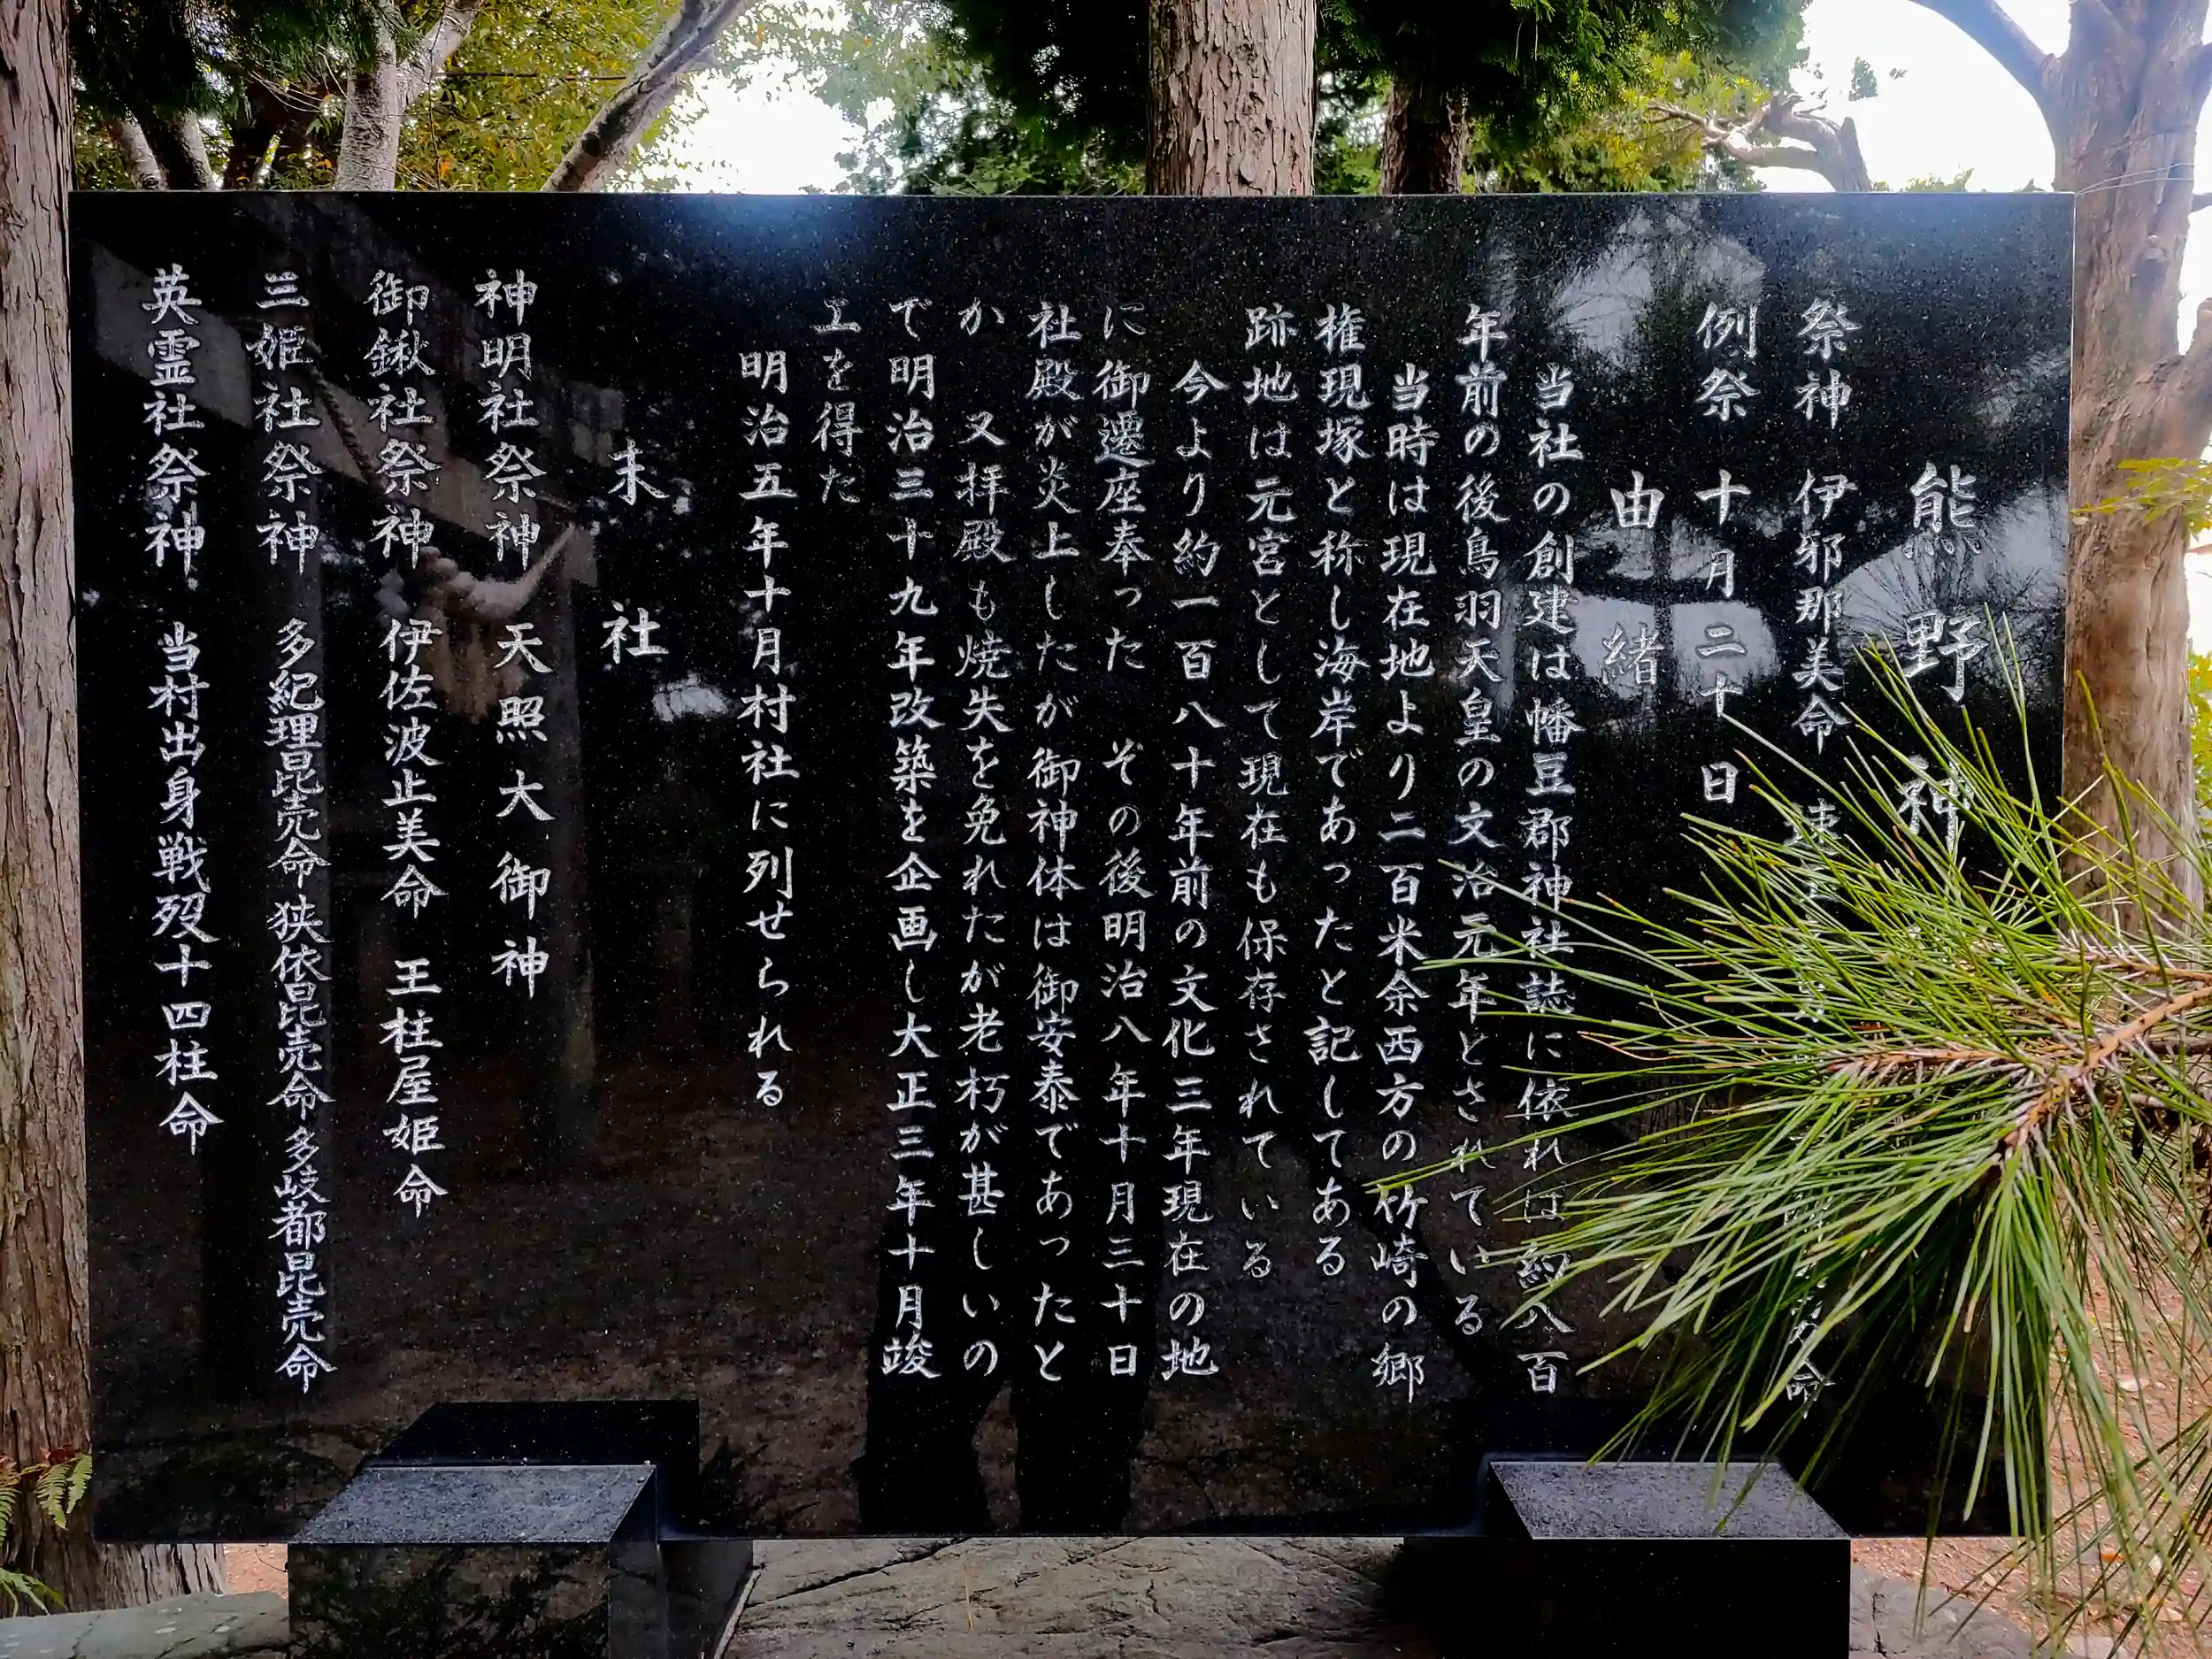 熊野神
祭神 伊邪那美命 速 命
例祭 十月二十日
由緒
当社の創建は幡豆郡神社誌に依れば約八百
年前の後鳥羽天皇の文治元年とされている
当時は現在地より二百米余西方の竹崎の郷
権現塚と称し海岸であったと記してある
跡地は元宮として現在も保存されている
今より約一百八十年前の文化三年現在の地
に御遷座奉った その後明治八年十月三十日
社殿が炎上したが御神体は御安泰であったと
か 又拝殿も焼失を免れたが老朽が甚しいの
で明治三十九年改築を企画し大正三年十月竣
工を得た
明治五年十月村社に列せられる
末社
神明社祭神 天照大御神
御鍬社祭神 伊佐波止美命 玉柱屋姫命
三姫社祭神 多紀理毘売命 狭依毘売命 多岐都毘売命
英霊社祭神 当村出身戦歿十四柱命